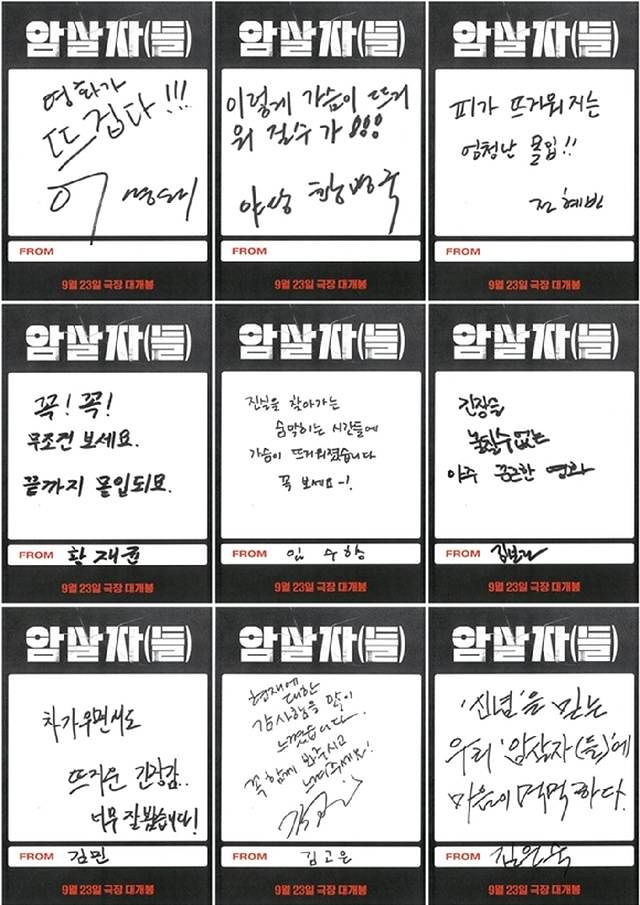 암살자(들)
영화가
뜨겁다!!!
이
FROM
9월 23일 극장 대개봉
암살자(들)
이렇게 가슴이 뜨거
워 질수가!!!
FROM
9월 23일 극장 대개봉
암살자(들)
피가 뜨거워지는
엄청난 몰입!!
전혜빈
FROM
9월 23일 극장 대개봉
암살자(들)
꼭! 꼭!
무조건 보세요.
끝까지 몰입되요.
FROM 황재균
9월 23일 극장 대개봉
암살자(들)
진실을 찾아가는
숨막히는 시간들에
가슴이 뜨거워졌습니다
꼭 보세요~!
FROM 임수향
9월 23일 극장 대개봉
암살자(들)
긴장을
놓칠수없는
아주 쫀쫀한 영화
FROM 김보라
9월 23일 극장 대개봉
암살자(들)
차가우면서도
뜨거운 긴장감..
너무 잘봤습니다!
FROM 김민
9월 23일 극장 대개봉
암살자(들)
현재에
대한
감사함을 많이
느꼈습니다.
꼭 함께 봐주시고
느껴주세요!
FROM 김고은
9월 23일 극장 대개봉
암살자(들)
'신념'을 믿는
우리 '암살자(들)'에
마음이 먹먹하다.
FROM 김은숙
9월 23일 극장 대개봉